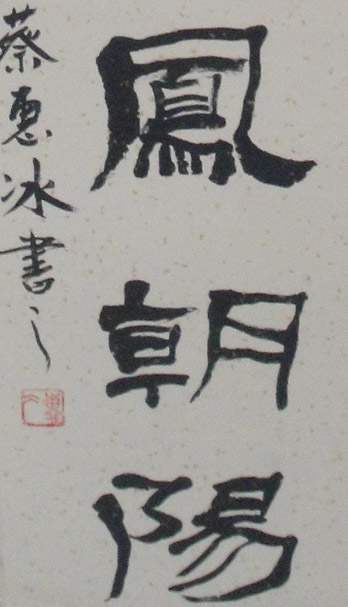 鳳朝陽
蔡惠冰書之